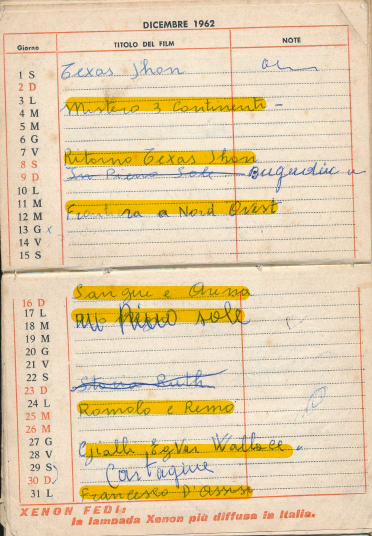 DICEMBRE 1962
Giorno TITOLO DEL FILM NOTE
1 S Texas Jhon
2 D
3 L Mistero 3 Continenti -
4 M
5 M
6 G
7 V Ritorno Texas Jhon
8 S
9 D In Pieno Sole
10 L
11 M Frontiera a Nord Ovest
12 M
13 G x
14 V
15 S
16 D Sangue e Arena
17 L in Pieno sole
18 M
19 M
20 G
21 V
22 S Ruth
23 D
24 L Romolo e Remo
25 M
26 M
27 G Gialli Egvar Wallace
28 V
29 S Castagine
30 D
31 L Francesco D'Assisi
XENON FEDI:
la lampada Xenon più diffusa in Italia.